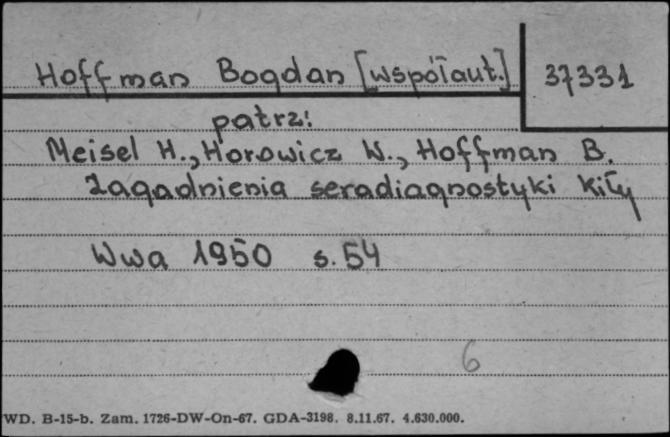 Hoffman Bogdan [współaut.] 37331
patrz:
Meisel H., Horowicz W., Hoffman B.
Zagadnienia seradiagnostyki kiły
Wwa 1950 s. 54
6
WD. B-15-b. Zam. 1726-DW-On-67. GDA-3198. 8.11.67. 4.630.000.